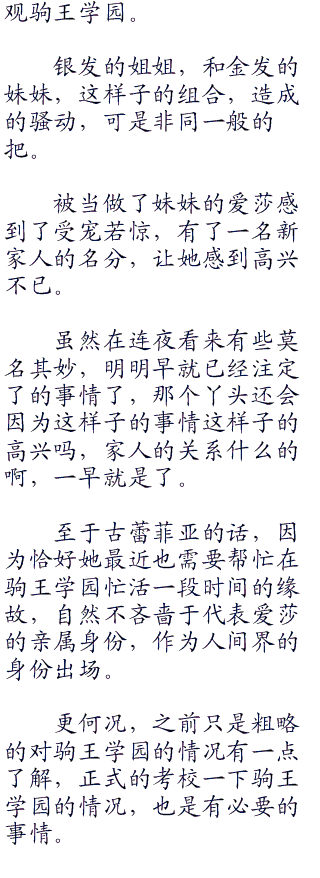 观驹王学园。
银发的姐姐，和金发的
妹妹，这样子的组合，造成
的骚动，可是非同一般的
把。
被当做了妹妹的爱莎感
到了受宠若惊，有了一名新
家人的名分，让她感到高兴
不已。
虽然在连夜看来有些莫
名其妙，明明早就已经注定
了的事情了，那个丫头还会
因为这样子的事情这样子的
高兴吗，家人的关系什么的
啊，一早就是了。
至于古蕾菲亚的话，因
为恰好她最近也需要帮忙在
驹王学园忙活一段时间的缘
故，自然不吝啬于代表爱莎
的亲属身份，作为人间界的
身份出场。
更何况，之前只是粗略
的对驹王学园的情况有一点
了解，正式的考校一下驹王
学园的情况，也是有必要的
事情。